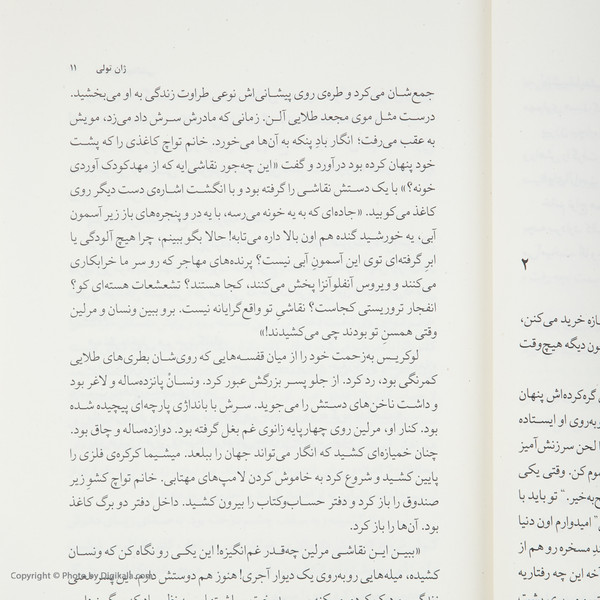 ژان تولی ۱۱
جمع‌شان می‌کرد و طره‌ی روی پیشانی‌اش نوعی طراوت زندگی به او می‌بخشید.
درست مثل موی مجعد طلایی آلن. زمانی که مادرش سرش داد می‌زد، مویش
به عقب می‌رفت؛ انگار بادِ پنکه به آن‌ها می‌خورد. خانم تواچ کاغذی را که پشت
خود پنهان کرده بود درآورد و گفت «این چه‌جور نقاشی‌ایه که از مهدکودک آوردی
خونه؟» با یک دستش نقاشی را گرفته بود و با انگشت اشاره‌ی دست دیگر روی
کاغذ می‌کوبید. «جاده‌ای که به یه خونه می‌رسه، با یه در و پنجره‌های باز زیر آسمون
آبی، یه خورشید گنده هم اون بالا داره می‌تابه! حالا بگو ببینم، چرا هیچ آلودگی یا
ابر گرفته‌ای توی این آسمونِ آبی نیست؟ پرنده‌های مهاجر که رو سر ما خرابکاری
می‌کنند و ویروس آنفلوآنزا پخش می‌کنند، کجا هستند؟ تشعشعات هسته‌ای کو؟
انفجار تروریستی کجاست؟ نقاشیِ تو واقع‌گرایانه نیست. برو ببین ونسان و مرلین
وقتی همسنِ تو بودند چی می‌کشیدند!»
لوکریس به‌زحمت خود را از میان قفسه‌هایی که روی‌شان بطری‌های طلایی
کمرنگی بود، رد کرد. از جلو پسر بزرگش عبور کرد. ونسانْ پانزده‌ساله و لاغر بود
و داشت ناخن‌های دستش را می‌جوید. سرش با بانداژی پارچه‌ای پیچیده شده
بود. کنار او، مرلین روی چهارپایه زانوی غم بغل گرفته بود. دوازده‌ساله و چاق بود.
چنان خمیازه‌ای کشید که انگار می‌تواند جهان را ببلعد. میشیما کرکره‌ی فلزی را
پایین کشید و شروع کرد به خاموش کردن لامپ‌های مهتابی. خانم تواچ کشوِ زیر
صندوق را باز کرد و دفتر حساب‌وکتاب را بیرون کشید. داخل دفتر دو برگ کاغذ
بود. آن‌ها را باز کرد.
«ببین این نقاشی مرلین چه‌قدر غم‌انگیزه! این یکی رو نگاه کن که ونسان
کشیده، میله‌هایی روبه‌روی یک دیوار آجری! هنوز هم دوستش دارم. این پسر معنی
۲
ازه خرید می‌کنن،
ون دیگه هیچ‌وقت
گره‌کرده‌اش پنهان
وبه‌روی او ایستاده
ا لحن سرزنش‌آمیز
سوم کن. وقتی یکی
ح‌به‌خیر." تو باید با
" امیدوارم اون دنیا
ند مسخره رو هم از
آخه این چه رفتاریه
Copyright © Photo by Digikala.com